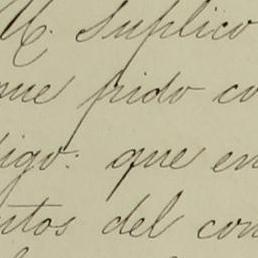 M. Suplico
que pido co
igo: que en
ntos del con